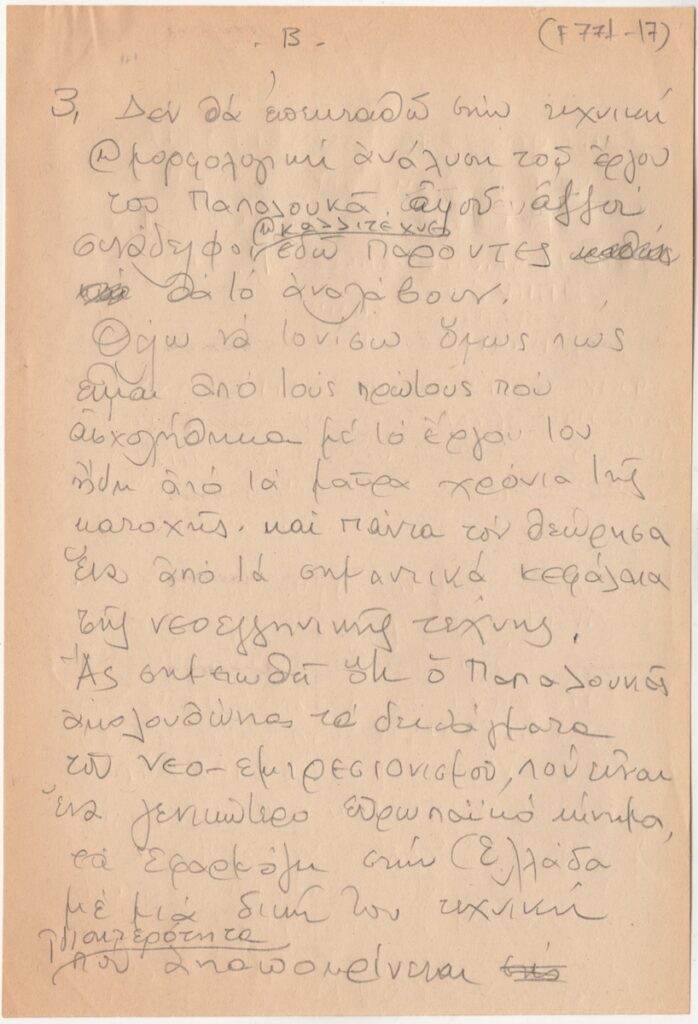 . Β .
(F 771-17)
3, Δέν θά ἐπεκταθῶ στήν τεχνική
ἤ μορφολογική ἀνάλυση τοῦ ἔργου
τοῦ Παπαλουκᾶ, ἀφοῦ ἄλλοι
ἤ καλλιτέχνες
συνάδελφοι ἐδῶ παρόντες
θά τό ἀναλάβουν.
Θέλω νά τονίσω ὅμως πώς
εἶμαι ἀπό τούς πρώτους πού
ἀσχολήθηκα μέ τό ἔργου του
ἤδη ἀπό τά μαῦρα χρόνια τῆς
κατοχῆς. καί πάντα τόν θεώρησα
ἕνα ἀπό τά σημαντικά κεφάλαια
τῆς νεοελληνικῆς τέχνης.
Ἄς σημειωθεῖ ὅτι ὁ Παπαλουκᾶς
ἀκολουθώντας τά διδάγματα
τοῦ νεο-εμπρεσιονισμοῦ, πού εἶναι
ἕνα γενικώτερο εὐρωπαϊκό κίνημα,
τά ἐφαρμόζει στήν Ἑλλάδα
μέ μιά δική του τεχνική
ἰδιαιτερότητα
πού ἀνταποκρίνεται